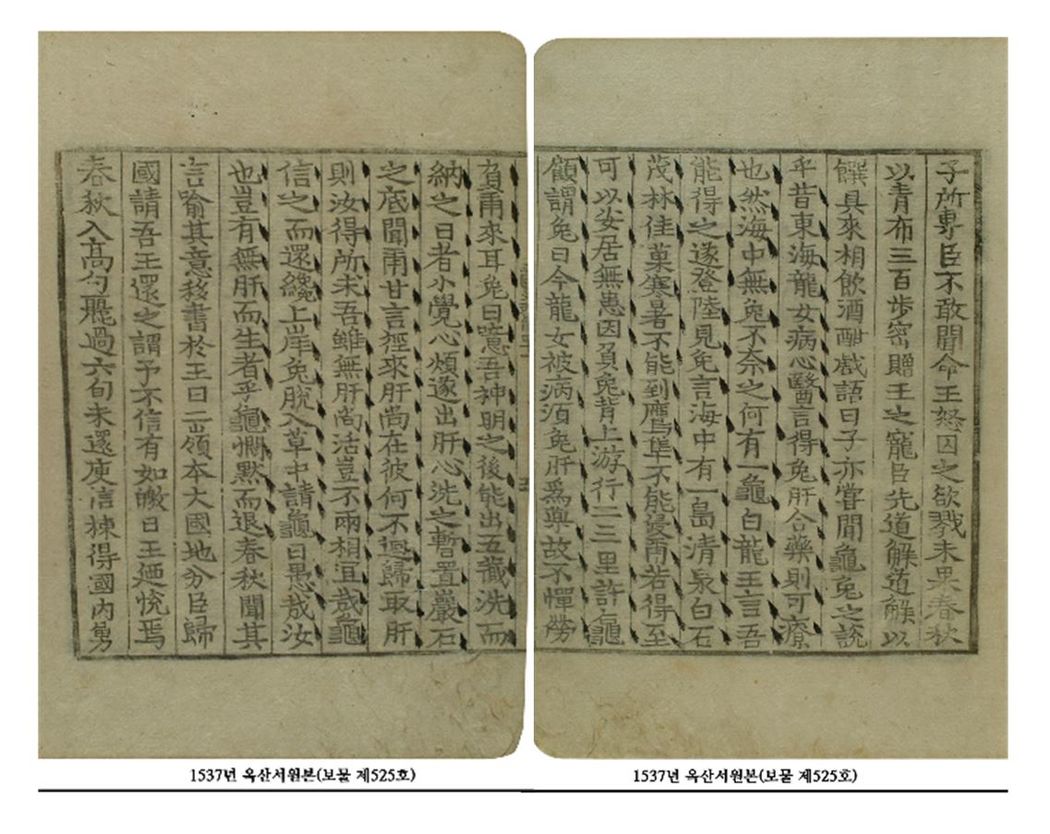 子所專臣不敢聞命王怒囚之欲戮未果春秋
以青布三百步密贈王之寵臣先道解道解以
饌具來相飮酒酣戲語曰子亦嘗聞龜兔之說
乎昔東海龍女病心醫言得兔肝合藥則可療
也然海中無兔不奈之何有一龜白龍王言吾
能得之遂登陸見兔言海中有一島清泉白石
茂林佳菓寒暑不能到鷹隼不能侵爾若得至
可以安居無患因負兔背上游行二三里許龜
顧謂兔曰今龍女被病須兔肝爲藥故不憚勞
負爾來耳兔曰噫吾神明之後能出五藏洗而
納之日者小覺心煩遂出肝心洗之暫置巖石
之底聞爾甘言徑來肝尚在彼何不廻歸取肝
則汝得所求吾雖無肝尚活豈不兩相宜哉龜
信之而還纔上岸兔脫入草中請龜曰愚哉汝
也豈有無肝而生者乎龜憫默而退春秋聞其
言喩其意移書於王曰二嶺本大國地分臣歸
國請吾王還之謂予不信有如皦日王迺悅焉
春秋入高句麗過六旬未還庾信揀得國內勇
1537년 옥산서원본(보물 제525호)
1537년 옥산서원본(보물 제525호)